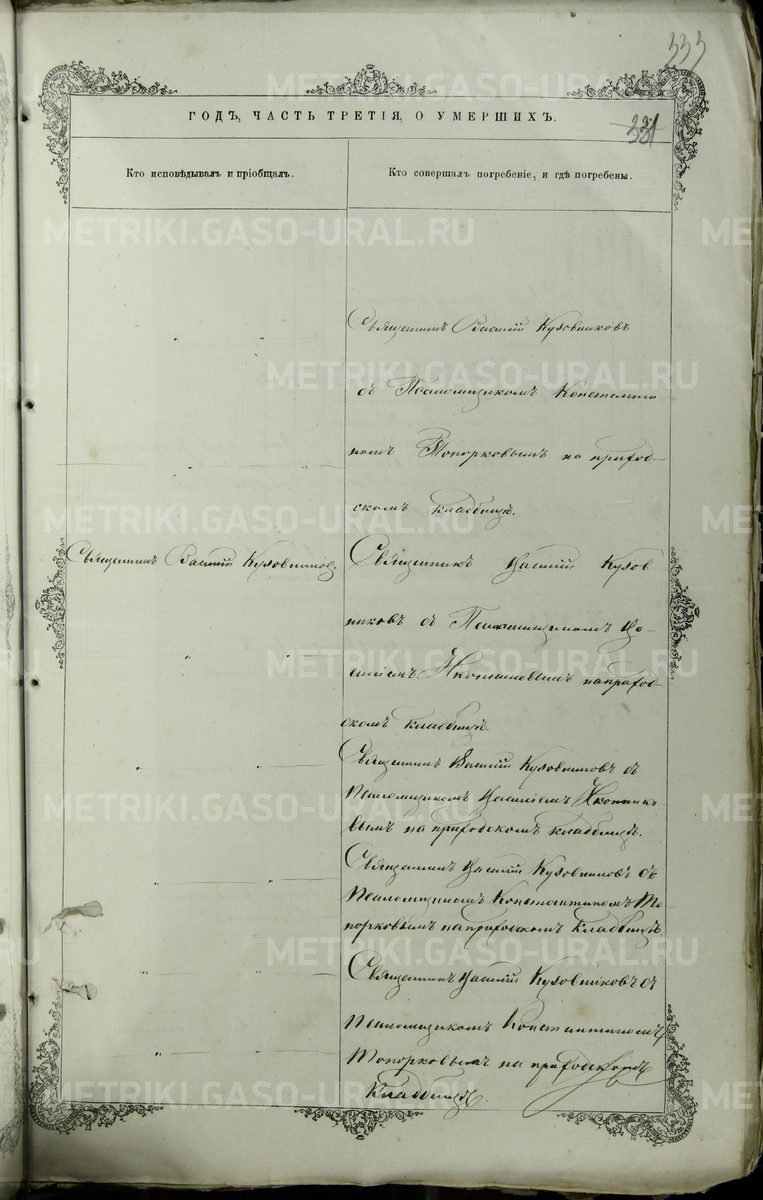 333
ГОДЪ, ЧАСТЬ ТРЕТІЯ, О УМЕРШИХЪ.
331
Кто исповѣдывалъ и пріобщалъ.
Кто совершалъ погребеніе, и гдѣ погребены.
METRIKI.GASO-URAL.RU
Священникъ Василій Кузовниковъ
съ Псаломщикомъ Константи
номъ Топорковымъ на приход-
скомъ кладбищѣ.
Священникъ Василій Кузовниковъ
Священникъ Василій Кузов
никовъ съ Псаломщикомъ Ва-
силіемъ Иконниковымъ на приход-
скомъ кладбищѣ.
Священникъ Василій Кузовниковъ съ
Псаломщикомъ Василіемъ Иконнико
вымъ на приходскомъ кладбищѣ.
Священникъ Василій Кузовниковъ съ
Псаломщикомъ Константиномъ То-
порковымъ на приходскомъ кладбищѣ
Священникъ Василій Кузовниковъ съ
Псаломщикомъ Константиномъ
Топорковымъ на приходскомъ
кладбищѣ.